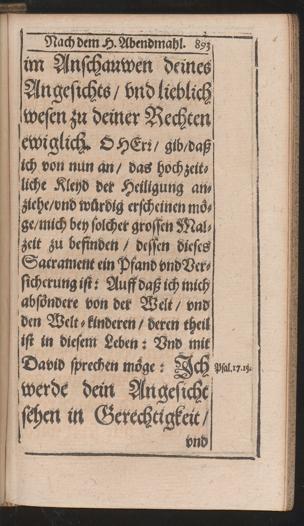 Nach dem H. Abendmahl. 893
im Anschauwen deines
Angesichts / vnd lieblich
wesen zu deiner Rechten
ewiglich. O HErr / gib / daß
ich von nun an / das hochzeit-
liche Kleyd der Heiligung an-
ziehe / vnd würdig erscheinen mö-
ge / mich bey solcher grossen Mal-
zeit zu befinden / dessen dieses
Sacrament ein Pfand vnd Ver-
sicherung ist: Auff daß ich mich
absöndere von der Welt / vnd
den Welt-kinderen / deren theil
ist in diesem Leben: Vnd mit
David sprechen möge: Ich
Psal. 17. 15.
werde dein Angesicht
sehen in Gerechtigkeit /
vnd